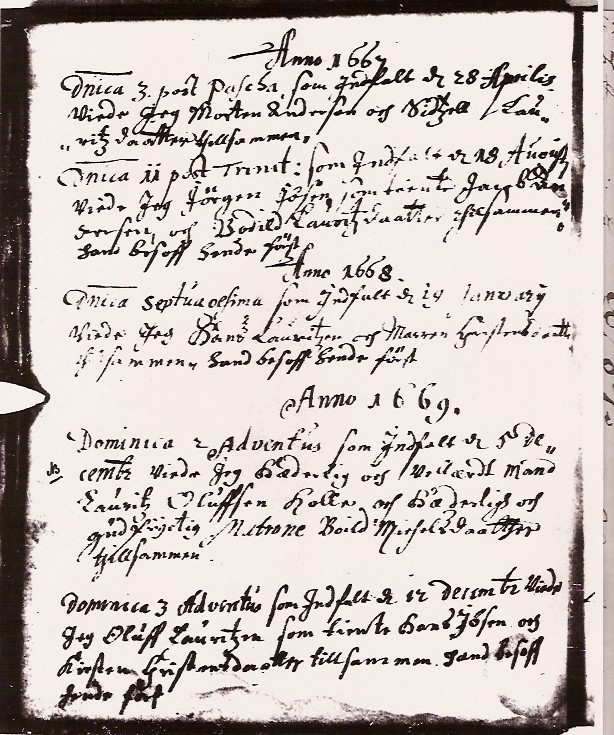 Anno 1667
Dnica 3. post Pascha, som Indfalt d. 28 Aprilis
Viede Jeg Morten Andersøn och Sidzell Lau„
„ritz daatter tillsammen,
Dnica 11 post Trinit: som Indfalt d. 18 August
Viede Jeg Jörgen Ibsen, som tiente Jacob An
dersen, och Bodild Lauritzdaatter thillsammen,
hand besoff hende först
Anno 1668.
Dnica Septuagesima som Indfalt d. 19 Ianuary
Viede Jeg Hans Lauritzen och Marren Christensdaatt
thilsammen, hand besoff hende först
Anno 1669.
Dominica 2 Adventus som Indfalt d. 5 De„
NB cembr Viede Jeg Hæderlig och Vellærdt Mand
Lauritz Oluffsen Kolle, och Hæderlig och
gudfrygtig Matrone Bodild Michelsdaatter
tillsammen.
Dominica 3 Adventus som Indfalt d. 12 Decembr Viede
Jeg Oluff Lauritzen som tiente Hans Ibsen och
Kirsten Christensdaatter tillsammen. hand besoff
hende först